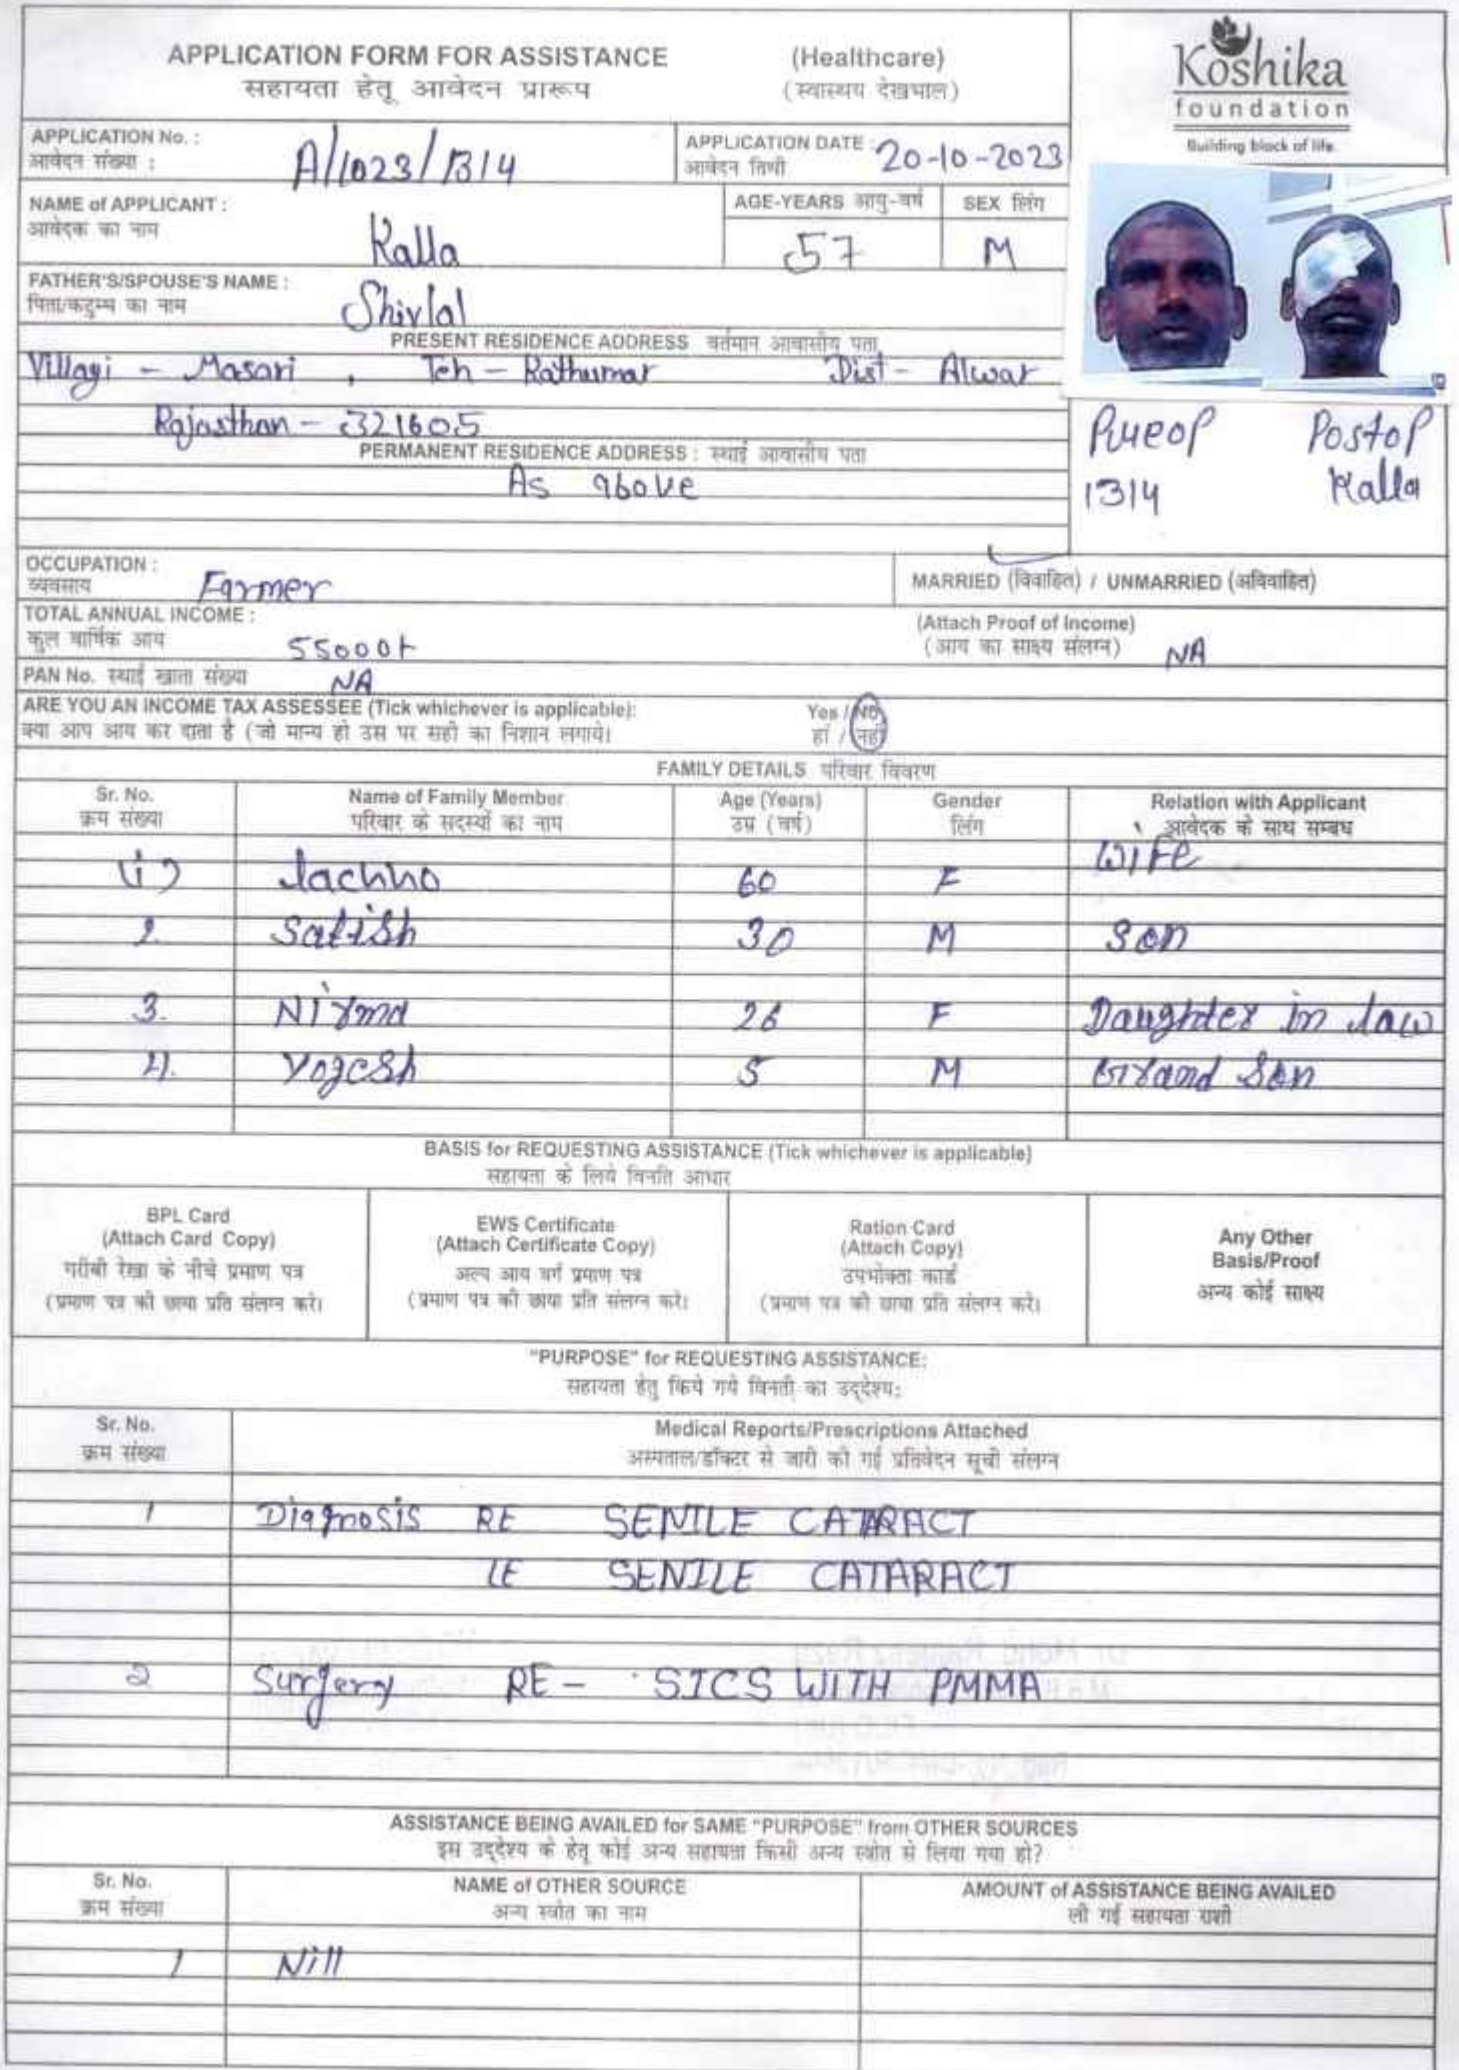 APPLICATION FORM FOR ASSISTANCE (Healthcare)
सहायता हेतू आवेदन प्रारूप (स्वास्थय देखभाल)
Koshika
foundation
Building block of life.
APPLICATION No. :
आवेदन संख्या :
A/1023/1314
APPLICATION DATE :
आवेदन तिथी
20-10-2023
NAME of APPLICANT :
आवेदक का नाम
Kalla
AGE-YEARS आयु-वर्ष
57
SEX लिंग
M
FATHER'S/SPOUSE'S NAME :
पिता/कटुम्ब का नाम
Shivlal
PRESENT RESIDENCE ADDRESS वर्तमान आवासीय पता
Villagi - Masari , Teh - Kathumar Dist - Alwar
Rajasthan - 321605
PERMANENT RESIDENCE ADDRESS : स्थाई आवासीय पता
As above
Preop Postop
1314 Kalla
OCCUPATION :
व्यवसाय
Farmer
MARRIED (विवाहित) / UNMARRIED (अविवाहित)
TOTAL ANNUAL INCOME :
कुल वार्षिक आय
55000
(Attach Proof of Income)
(आय का साक्ष्य संलग्न)
NA
PAN No. स्थाई खाता संख्या
NA
ARE YOU AN INCOME TAX ASSESSEE (Tick whichever is applicable): Yes / NO
क्या आप आय कर दाता है (जो मान्य हो उस पर सही का निशान लगाये। हां / नहीं
FAMILY DETAILS परिवार विवरण
Sr. No. Name of Family Member Age (Years) Gender Relation with Applicant
क्रम संख्या परिवार के सदस्यों का नाम उम्र (वर्ष) लिंग आवेदक के साथ सम्बध
(1) Lachho 60 F Wife
2. Satish 30 M Son
3. Nirma 26 F Daughter in law
4. Yogesh 5 M Grand Son
BASIS for REQUESTING ASSISTANCE (Tick whichever is applicable)
सहायता के लिये विनति आधार
BPL Card
(Attach Card Copy)
गरीबी रेखा के नीचे प्रमाण पत्र
(प्रमाण पत्र की छाया प्रति संलग्न करे।
EWS Certificate
(Attach Certificate Copy)
अल्प आय वर्ग प्रमाण पत्र
(प्रमाण पत्र की छाया प्रति संलग्न करे।
Ration Card
(Attach Copy)
उपभोक्ता कार्ड
(प्रमाण पत्र की छाया प्रति संलग्न करे।
Any Other
Basis/Proof
अन्य कोई साक्ष्य
"PURPOSE" for REQUESTING ASSISTANCE:
सहायता हेतु किये गये विनती का उद्देश्य:
Sr. No. Medical Reports/Prescriptions Attached
क्रम संख्या अस्पताल/डॉक्टर से जारी की गई प्रतिवेदन सूची संलग्न
1 Diagnosis RE SENILE CATARACT
LE SENILE CATARACT
2 Surgery RE - SICS WITH PMMA
ASSISTANCE BEING AVAILED for SAME "PURPOSE" from OTHER SOURCES
इस उद्देश्य के हेतू कोई अन्य सहायता किसी अन्य स्त्रोत से लिया गया हो?
Sr. No. NAME of OTHER SOURCE AMOUNT of ASSISTANCE BEING AVAILED
क्रम संख्या अन्य स्त्रोत का नाम ली गई सहायता राशी
1 Nill